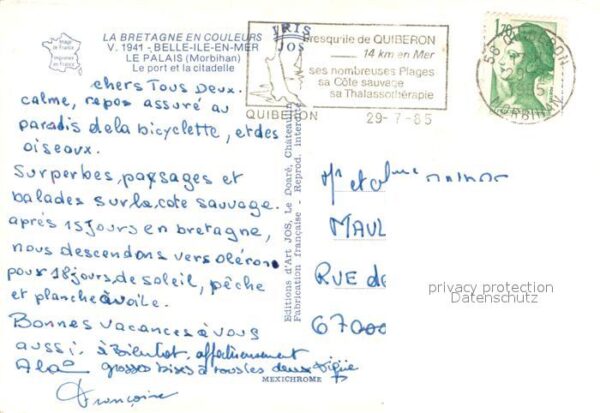 LA BRETAGNE EN COULEURS
V. 1941 - BELLE-ILE-EN-MER
LE PALAIS (Morbihan)
Le port et la citadelle
image de France
IRIS
JOS
Presqu'ile de QUIBERON
14 km en Mer
ses nombreuses Plages
sa Côte sauvage
sa Thalassothérapie
QUIBERON
29-7-85
1,70
56 QUIBERON
MORBIHAN
chers Tous Deux.
calme, repos assuré au
paradis de la bicyclette, et des
oiseaux.
Surperbes, paysages et
balades sur la cote sauvage.
après 15 jours en bretagne,
nous descendons vers oléron
pour 18 jours de soleil, pêche
et planche à voile.
Bonnes vacances à vous
aussi. à Bientot. affectueusement
grosses bises à tous les deux
Françoise
Editions d'Art JOS, Le Doaré, Châteaulin
Fabrication française - Reprod. interdite
MEXICHROME
Mr et
MAUL
RUE de
67000
privacy protection
Datenschutz